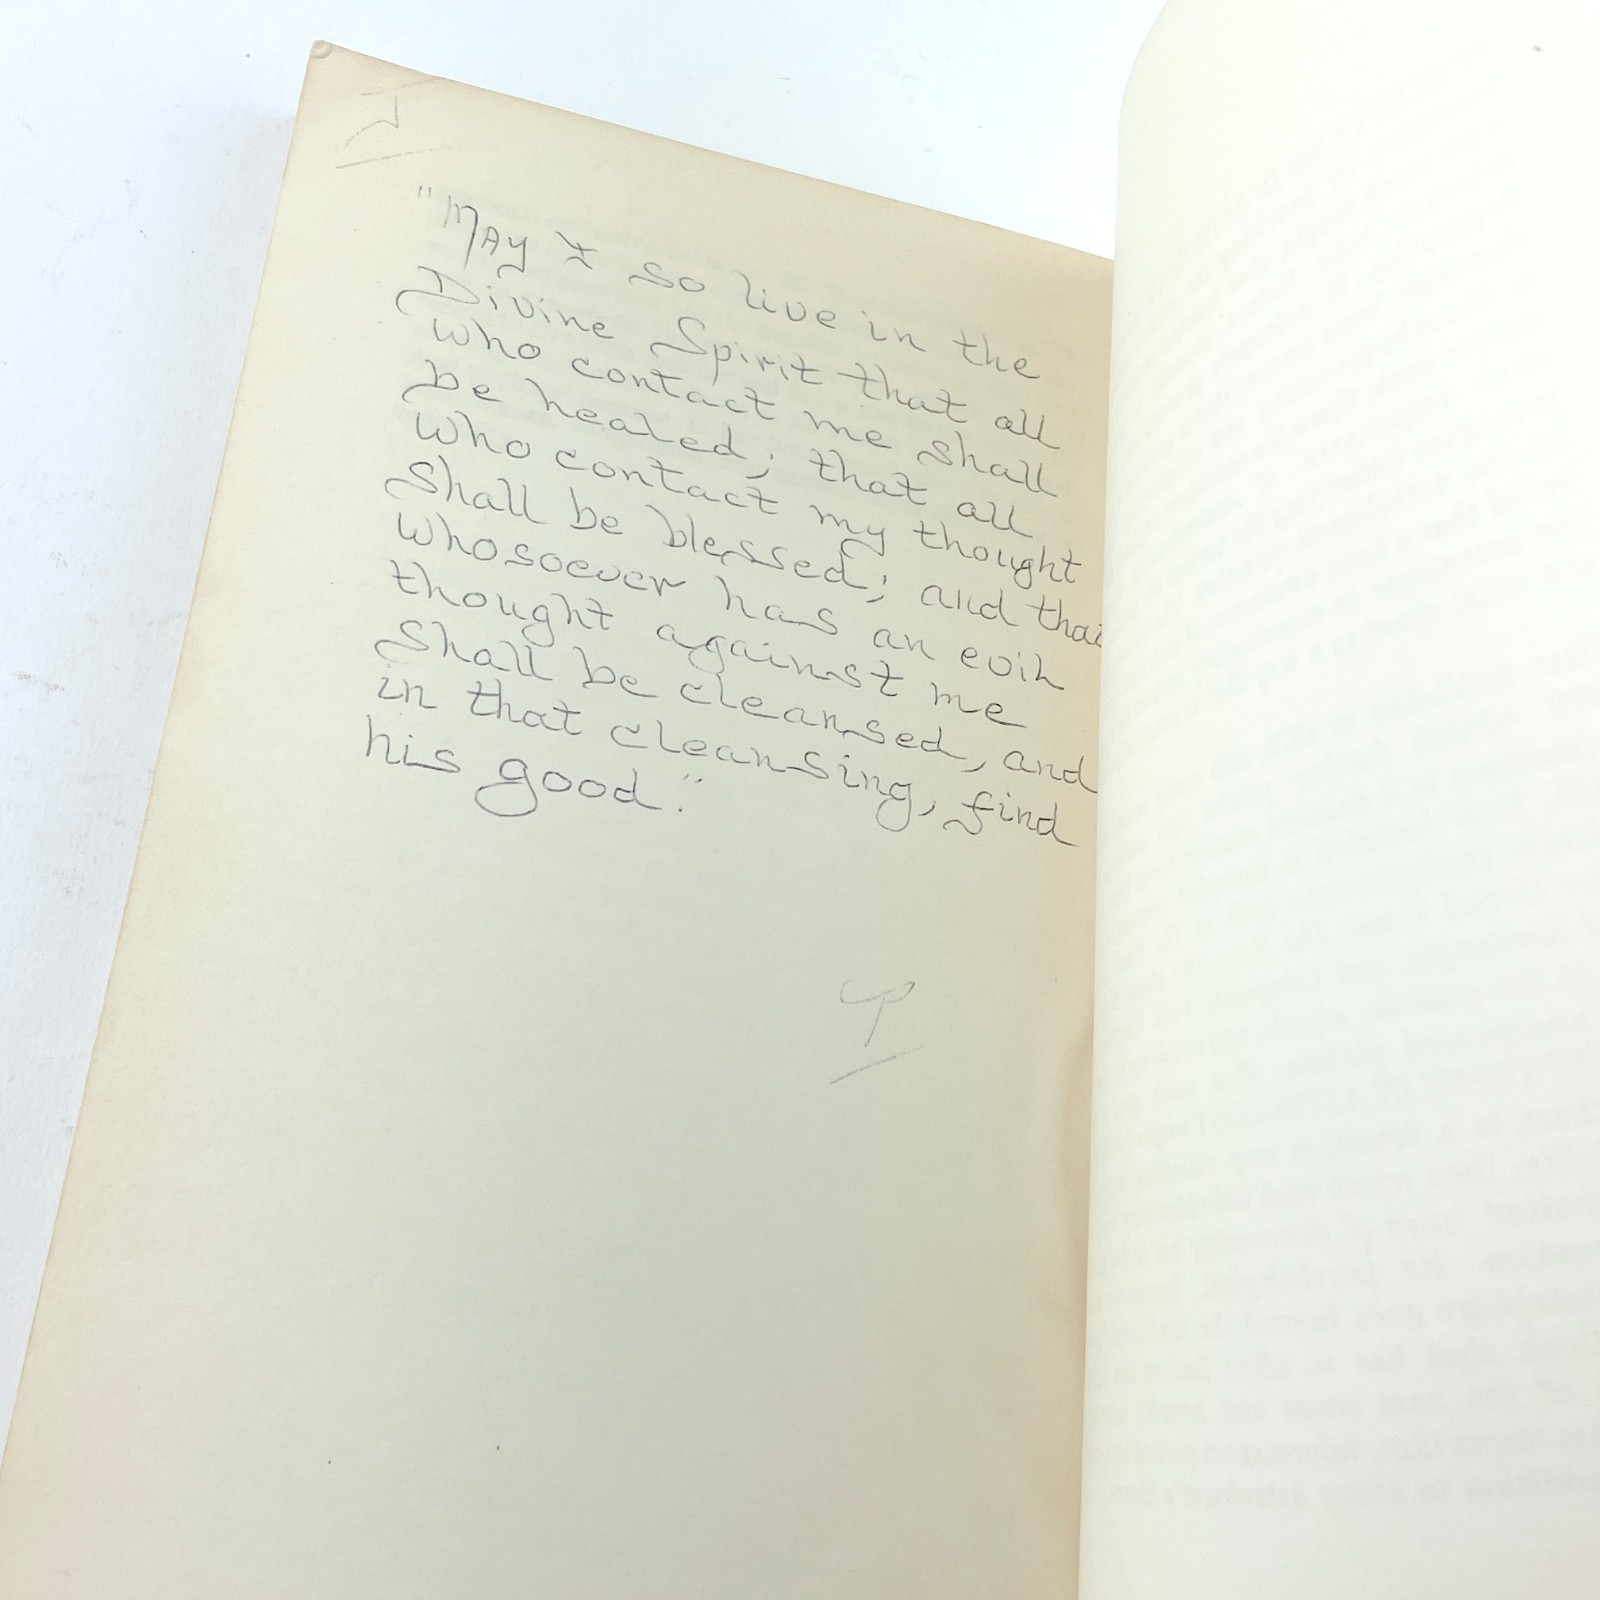 "May I so live in the
Divine Spirit that all
who contact me shall
be healed; that all
who contact my thought
shall be blessed; and that
whosoever has an evil
thought against me
shall be cleansed, and
in that cleansing, find
his good."